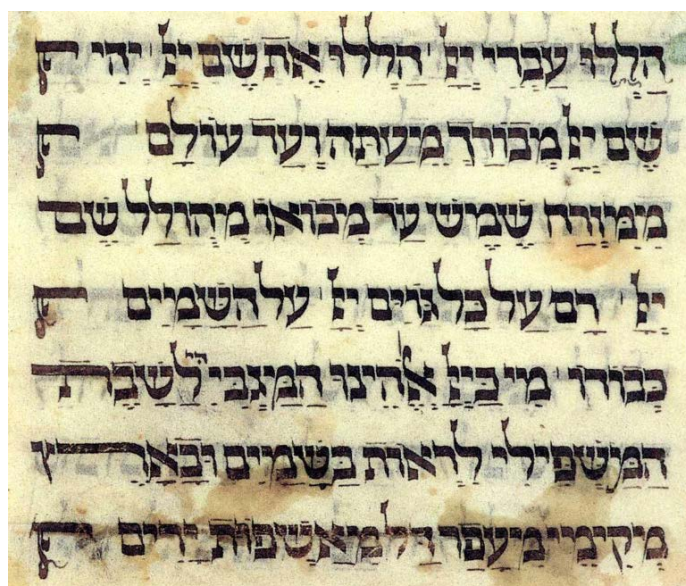 הללו עבדי ייי הללו את שם ייי יהי
שם ייי מבורך מעתה ועד עולם
מימזרח שמש עד מבואו מהולל שם
ייי רם על כל גוים ייי על השמים
כבודו מי כייי אלהינו המגביהי לשבת
המשפילי לראות בשמים ובארץ
מקימי מיעפר דל מיאשפות ירים